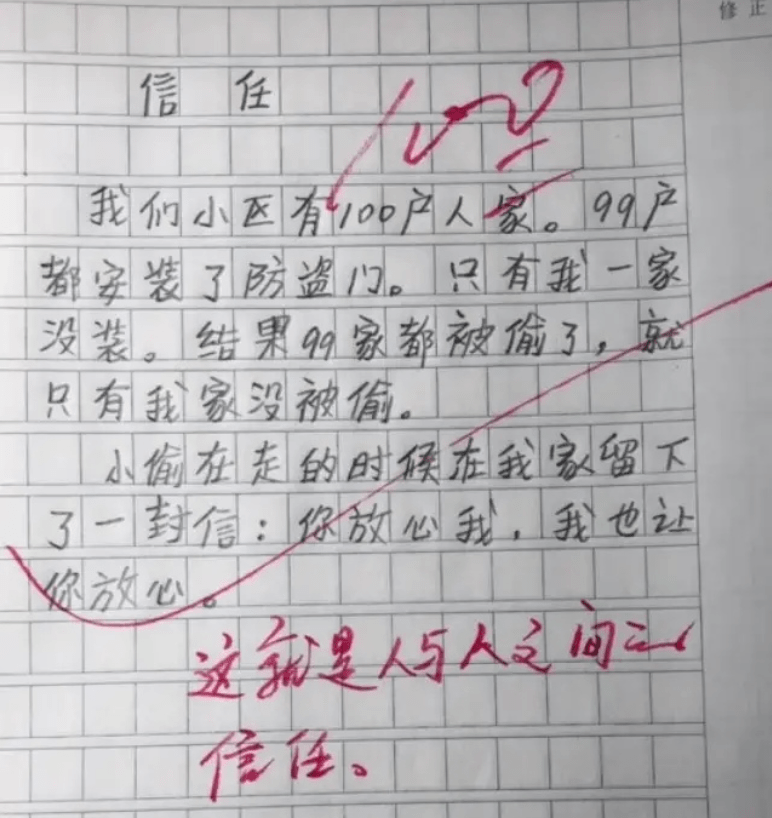 修正
信任
100
我们小区有100户人家。99户
都安装了防盗门。只有我一家
没装。结果99家都被偷了，就
只有我家没被偷。
小偷在走的时候在我家留下
了一封信：你放心我，我也让
你放心。
这就是人与人之间
信任。